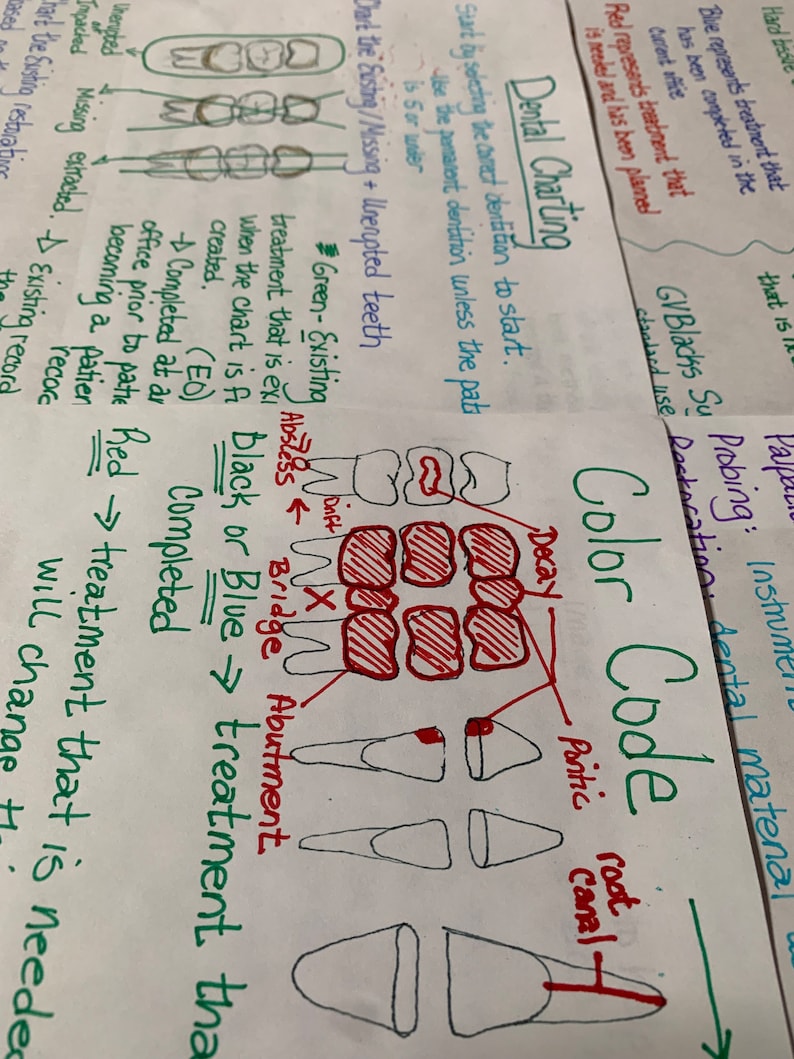 Hard
Blue represents treatment that
has been completed in the
current office
Red represents treatment that
is needed and has been planned
that is
GV Blacks
standard use
Dental Charting
Start by selecting the correct dentition to start.
Use the permanent dentition unless the
is 5 or under
Chart the Existing/Missing + Unerupted teeth
Unerupted
or
Impacted
Missing
extracted.
Green - Existing
treatment that is
when the chart is
created. (EO)
→ Completed at
office prior to
becoming a
Existing record
the
Probing: Instrument
dental material
Color Code
Decay
Pontic
root
canal
Drift
Abscess
Bridge
X
Abutment
Black or Blue → treatment
Completed
Red → treatment that is needed
will change